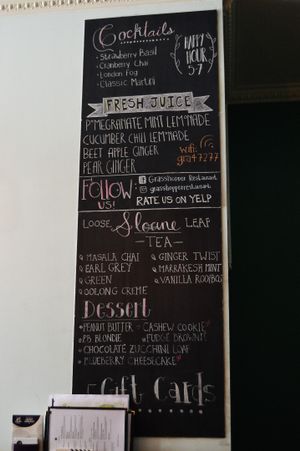 Cocktails
• Strawberry Basil
• Cranberry Chai
• London Fog
• Classic Martini
HAPPY
HOUR
5-7
FRESH JUICE
P'MEGRANATE MINT LEM'NADE
CUCUMBER CHILI LEM'NADE
BEET APPLE GINGER
PEAR GINGER
wifi:
gra47277
FOLLOW
US!
Grasshopper Restaurant
grasshopperrestaurant
RATE US ON YELP
LOOSE Sloane LEAF
—TEA—
MASALA CHAI
EARL GREY
GREEN
OOLONG CREME
GINGER TWIST
MARRAKESH MINT
VANILLA ROOIBOS
Dessert
PEANUT BUTTER
PB BLONDIE
CASHEW COOKIE
FUDGE BROWNIE
CHOCOLATE ZUCCHINI LOAF
BLUEBERRY CHEESECAKE
Gift Cards